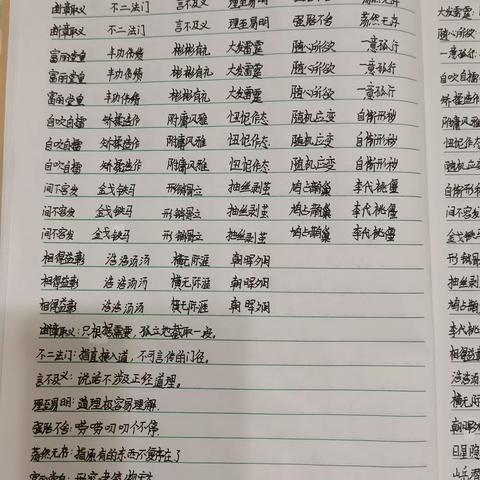 断章取义 不二法门 言不及义 理至易明 强聒不舍 荡然无存
断章取义 不二法门 言不及义 理至易明 强聒不舍 荡然无存
富丽堂皇 丰功伟绩 彬彬有礼 大发雷霆 随心所欲 一意孤行
富丽堂皇 丰功伟绩 彬彬有礼 大发雷霆 随心所欲 一意孤行
富丽堂皇 丰功伟绩 彬彬有礼 大发雷霆 随心所欲 一意孤行
自吹自擂 矫揉造作 附庸风雅 忸怩作态 随机应变 自惭形秽
自吹自擂 矫揉造作 附庸风雅 忸怩作态 随机应变 自惭形秽
自吹自擂 矫揉造作 附庸风雅 忸怩作态 随机应变 自惭形秽
间不容发 金戈铁马 形销骨立 抽丝剥茧 鸠占鹊巢 李代桃僵
间不容发 金戈铁马 形销骨立 抽丝剥茧 鸠占鹊巢 李代桃僵
间不容发 金戈铁马 形销骨立 抽丝剥茧 鸠占鹊巢 李代桃僵
相得益彰 浩浩汤汤 横无际涯 朝晖夕阴
相得益彰 浩浩汤汤 横无际涯 朝晖夕阴
相得益彰 浩浩汤汤 横无际涯 朝晖夕阴
断章取义：只根据需要，孤立地截取一段。
不二法门：指直接入道，不可言传的门径。
言不及义：说话不涉及正经道理。
理至易明：道理极容易理解
强聒不舍：唠唠叨叨个不停
荡然无存：指原有的东西不复存在了
大发雷霆
随心所欲
一意孤行
自吹自擂
矫揉造作
附庸风雅
忸怩作态
随机应变
自惭形秽
间不容发
金戈铁马
形销骨立
抽丝剥茧
鸠占鹊巢
李代桃僵
相得益彰
浩浩汤汤
横无际涯
朝晖夕阴
日星隐